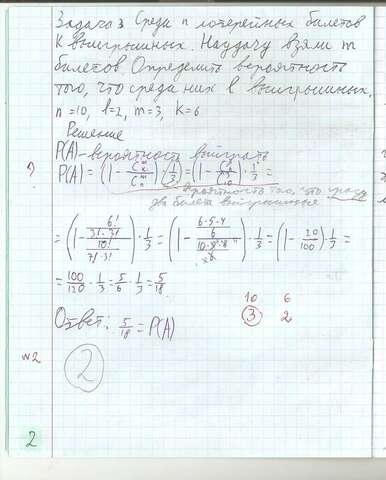 Задача 3 Среди n лотерейных билетов
K выигрышных. Наудачу взяли m
билетов. Определить вероятность
того, что среди них l выигрышных.
n=10, l=2, m=3, K=6
Решение
P(A) - вероятность выиграть
? P(A) = (1 - C_K^m / C_n^m) · (1/3) = (1 - C_6^3 / C_10^3) · 1/3 =
вероятность того, что сразу
два билета выигрышные
= (1 - (6! / 3!·3!) / (10! / 7!·3!)) · 1/3 = (1 - (6·5·4 / 6) / (10·9·8 / 6)) · 1/3 = (1 - 20/100) · 1/3 =
= 100/120 · 1/3 = 5/6 · 1/3 = 5/18
10 6
3 2
Ответ: 5/18 = P(A)
№2
2
2